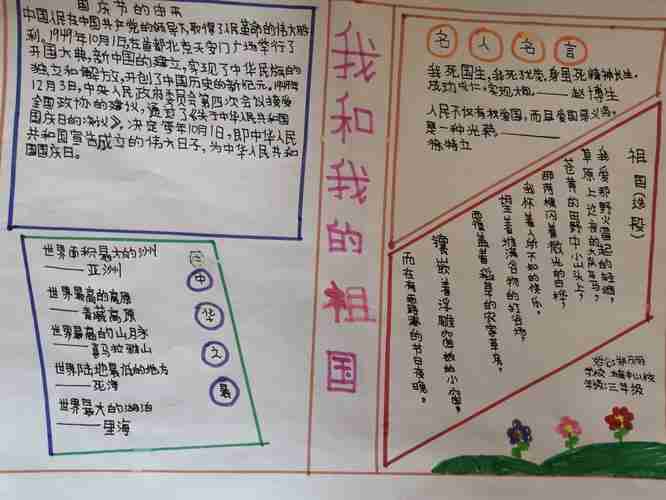 国庆节的由来
中国人民在中国共产党的领导下取得了人民革命的伟大胜
利。1949年10月1日,在首都北京天安门广场举行了
开国大典,新中国的建立,实现了中华民族的
独立和解放,开创了中国历史的新纪元。1949年
12月3日,中央人民政府委员会第四次会议接受
全国政协的建议,通过了《关于中华人民共和国
国庆日的决议》,决定每年10月1日,即中华人民
共和国宣告成立的伟大日子,为中华人民共和
国国庆日。
世界面积最大的洲
——亚洲
世界最高的高原
——青藏高原
世界最高的山脉
——喜马拉雅山
世界陆地最低的地方
——死海
世界最大的湖泊
——里海
中
华
文
我和我的祖国
名人名言
我死国生,我死犹荣,身虽死精神长生,
成功成仁,实现大同。——赵博生
人民不仅有权爱国,而且爱国是义务,
是一种光荣。——
徐特立
祖国(选段)
我爱那野火冒起的轻烟,
草原上过夜的大队车马,
苍黄的田野中小山头上,
那两棵闪着微光的白桦,
我怀着人所不知的快乐,
望着堆满谷物的打谷场,
覆盖着稻草的农家草房,
镶嵌着浮雕的小窗,
而在有露水的节日夜晚。
三年级